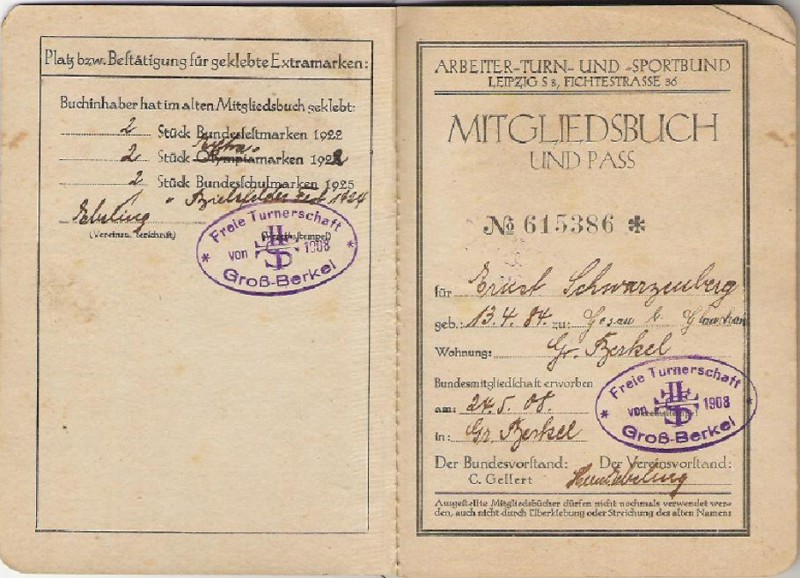 Platz bzw. Bestätigung für geklebte Extramarken:
Buchinhaber hat im alten Mitgliedsbuch geklebt:
2 Stück Bundesfestmarken 1922
2 Stück Olympiamarken 1922
2 Stück Bundesschulmarken 1925
" Bielefelder Fest 1924
Ebeling
(Vereinsstempel)
Freie Turnerschaft
von 1908
Groß-Berkel
ARBEITER-TURN- UND -SPORTBUND
LEIPZIG S 3, FICHTESTRASSE 36
MITGLIEDSBUCH
UND PASS
№ 615386 *
für Ernst Schwarzenberg
geb.: 13.4.84. zu: Gesau b. Glauchau
Wohnung: Gr. Berkel
Bundesmitgliedschaft erworben
am: 24.5.08.
in: Gr. Berkel
Freie Turnerschaft
von 1908
Groß-Berkel
Der Bundesvorstand: Der Vereinsvorstand:
C. Gellert
Ausgestellte Mitgliedsbücher dürfen nicht nochmals verwendet wer-
den, auch nicht durch Überklebung oder Streichung des alten Namens